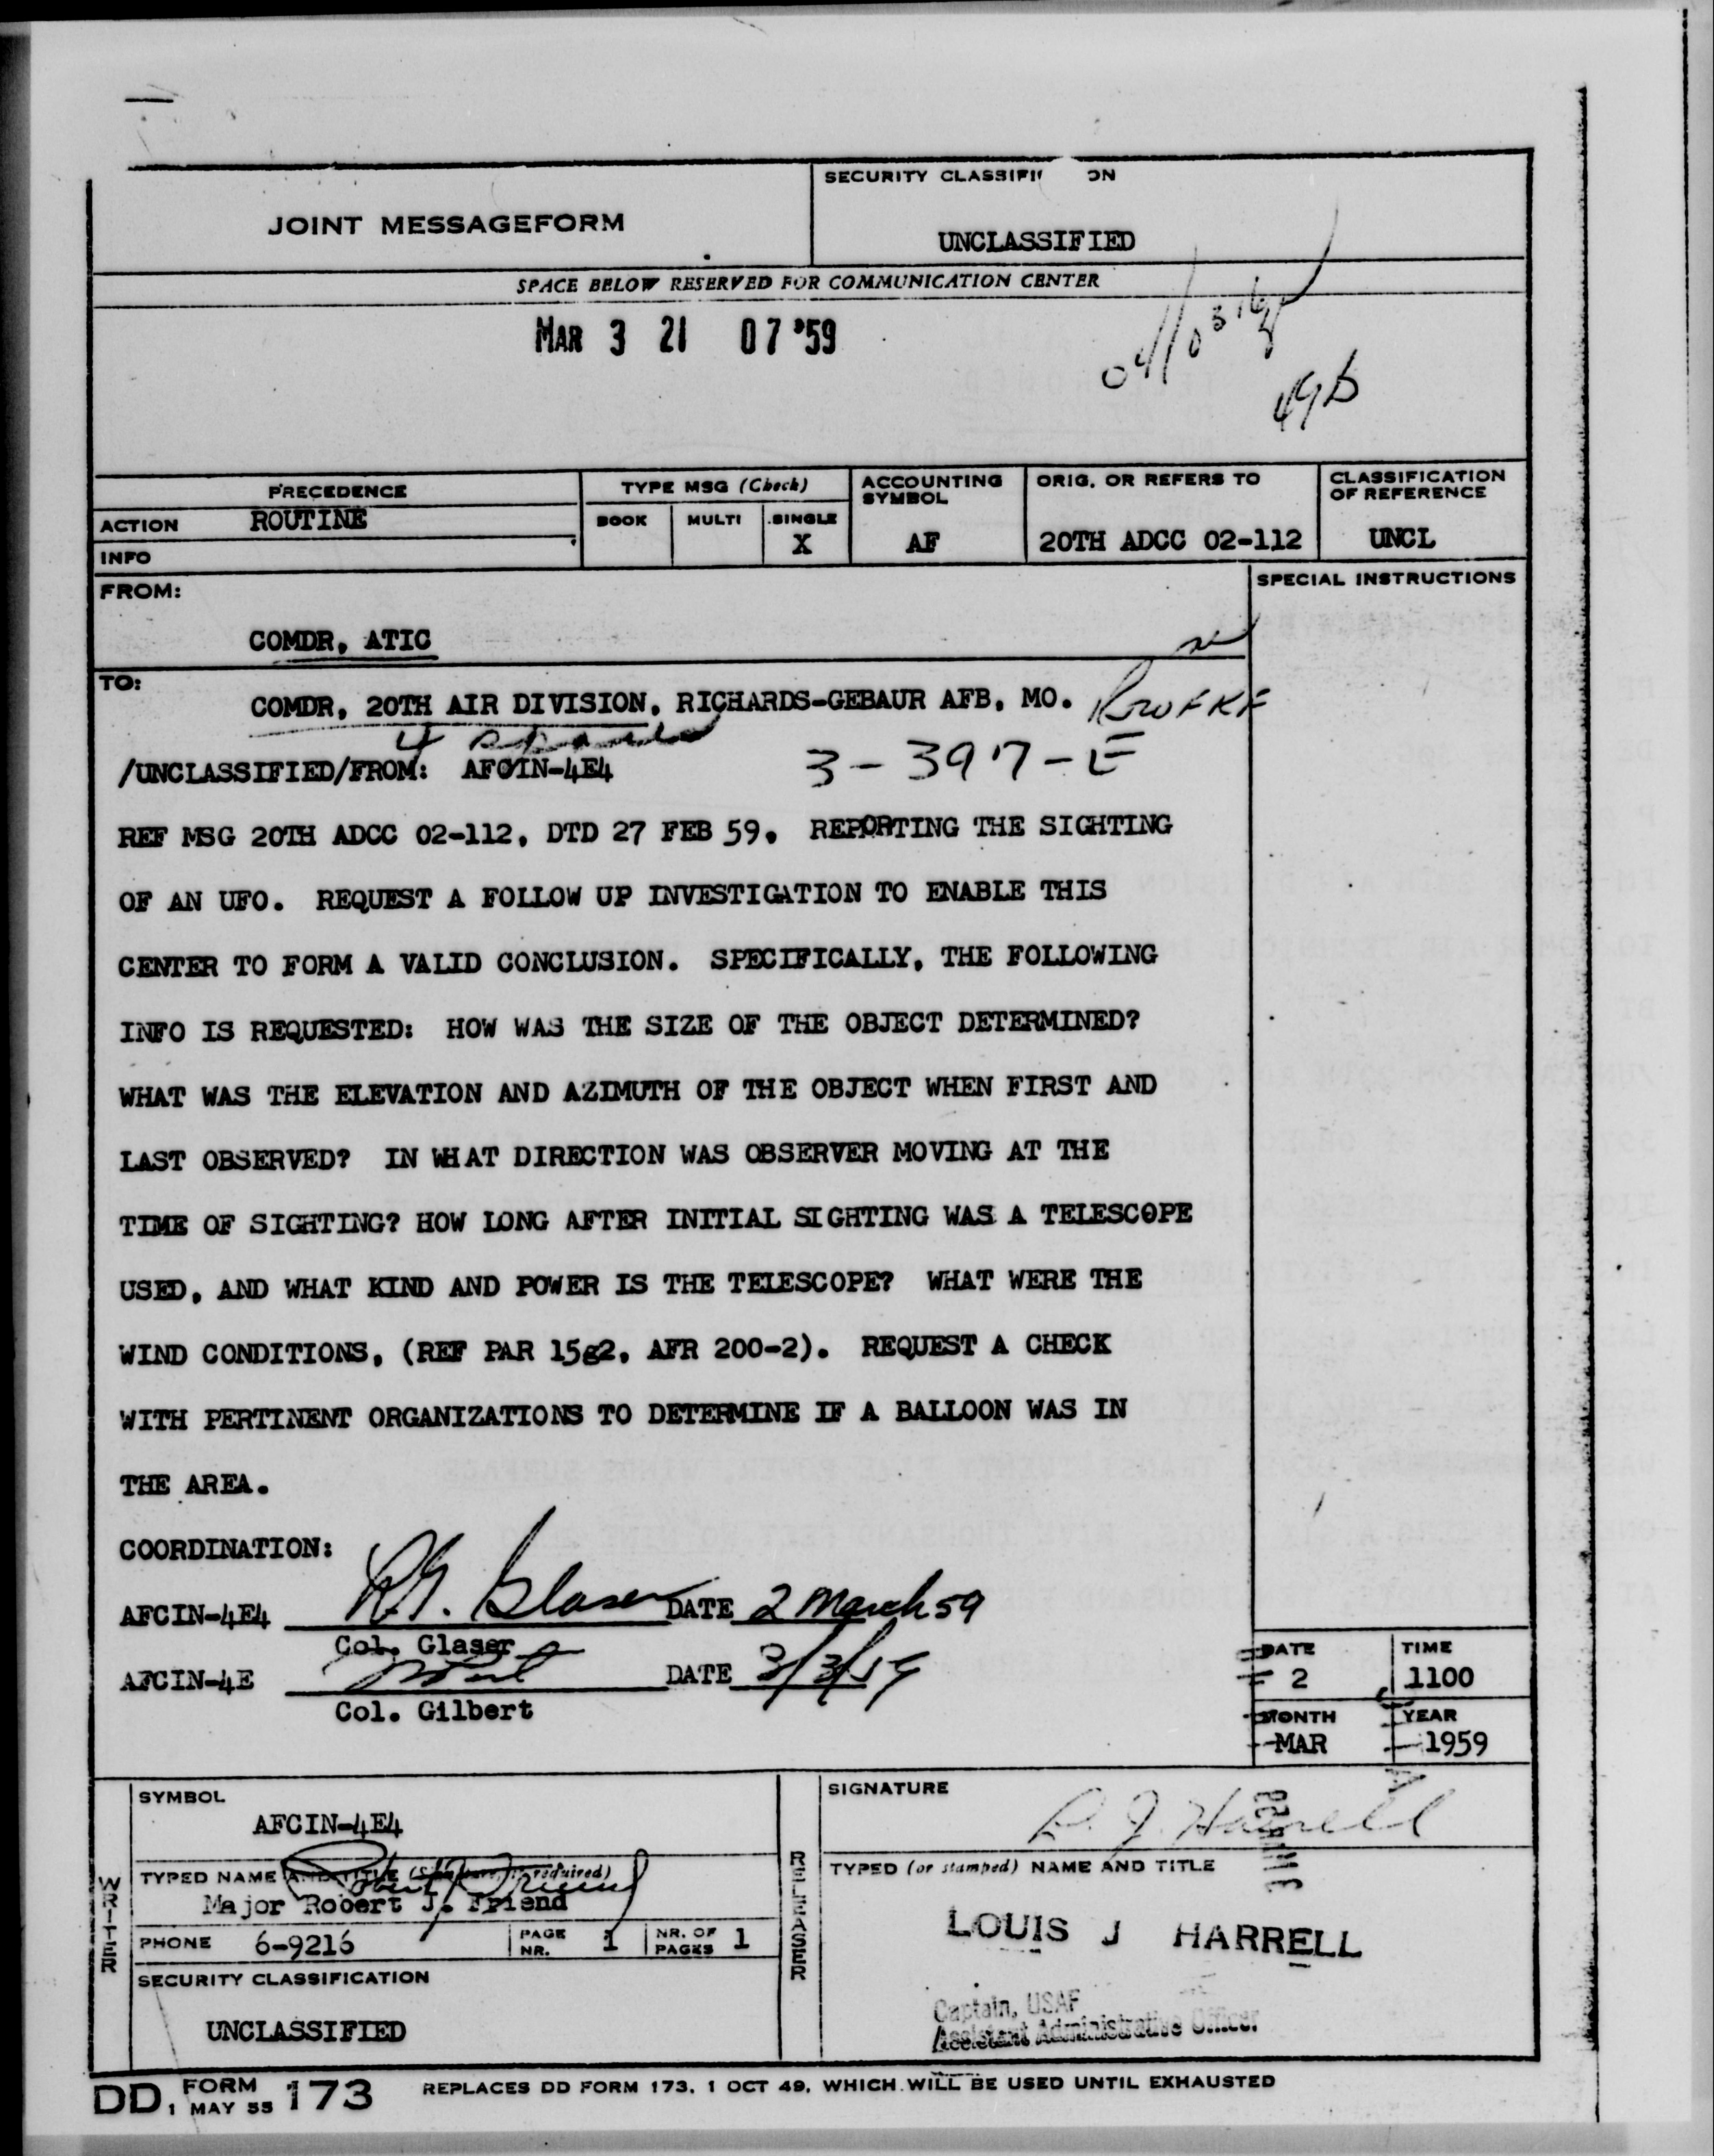 SECURITY CLASSIFI ON
JOINT MESSAGEFORM
UNCLASSIFIED
SPACE BELOW RESERVED FOR COMMUNICATION CENTER
MAR 3 21 07 '59
49b
PRECEDENCE
TYPE MSG (Check)
ACCOUNTING SYMBOL
ORIG. OR REFERS TO
CLASSIFICATION OF REFERENCE
ACTION ROUTINE
BOOK MULTI SINGLE
X
AF
20TH ADCC 02-112
UNCL
INFO
FROM:
SPECIAL INSTRUCTIONS
COMDR, ATIC
TO:
COMDR, 20TH AIR DIVISION, RICHARDS-GEBAUR AFB, MO. RWFKF
/UNCLASSIFIED/FROM: AFCIN-4E4 3-397-E
REF MSG 20TH ADCC 02-112, DTD 27 FEB 59. REPORTING THE SIGHTING
OF AN UFO. REQUEST A FOLLOW UP INVESTIGATION TO ENABLE THIS
CENTER TO FORM A VALID CONCLUSION. SPECIFICALLY, THE FOLLOWING
INFO IS REQUESTED: HOW WAS THE SIZE OF THE OBJECT DETERMINED?
WHAT WAS THE ELEVATION AND AZIMUTH OF THE OBJECT WHEN FIRST AND
LAST OBSERVED? IN WHAT DIRECTION WAS OBSERVER MOVING AT THE
TIME OF SIGHTING? HOW LONG AFTER INITIAL SIGHTING WAS A TELESCOPE
USED, AND WHAT KIND AND POWER IS THE TELESCOPE? WHAT WERE THE
WIND CONDITIONS, (REF PAR 15g2, AFR 200-2). REQUEST A CHECK
WITH PERTINENT ORGANIZATIONS TO DETERMINE IF A BALLOON WAS IN
THE AREA.
COORDINATION:
AFCIN-4E4 R.G. Glaser DATE 2 March 59
Col. Glaser
AFCIN-4E DATE 3/3/59
Col. Gilbert
DATE TIME
2 1100
MONTH YEAR
MAR 1959
WRITER
SYMBOL
AFCIN-4E4
TYPED NAME AND TITLE (Signature, if required)
Major Robert J. Friend
PHONE 6-9216
PAGE NR. 1
NR. OF PAGES 1
SECURITY CLASSIFICATION
UNCLASSIFIED
RELEASER
SIGNATURE
L. J. Harrell
TYPED (or stamped) NAME AND TITLE
LOUIS J HARRELL
Captain, USAF
Assistant Administrative Officer
DD FORM 1 MAY 55 173
REPLACES DD FORM 173, 1 OCT 49, WHICH WILL BE USED UNTIL EXHAUSTED